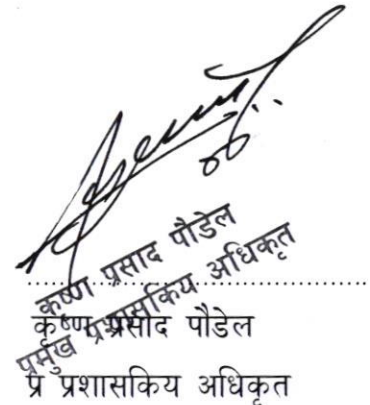 कृष्ण प्रसाद पौडेल
प्रमुख प्रशासकिय अधिकृत
कृष्ण प्रसाद पौडेल
प्र प्रशासकिय अधिकृत